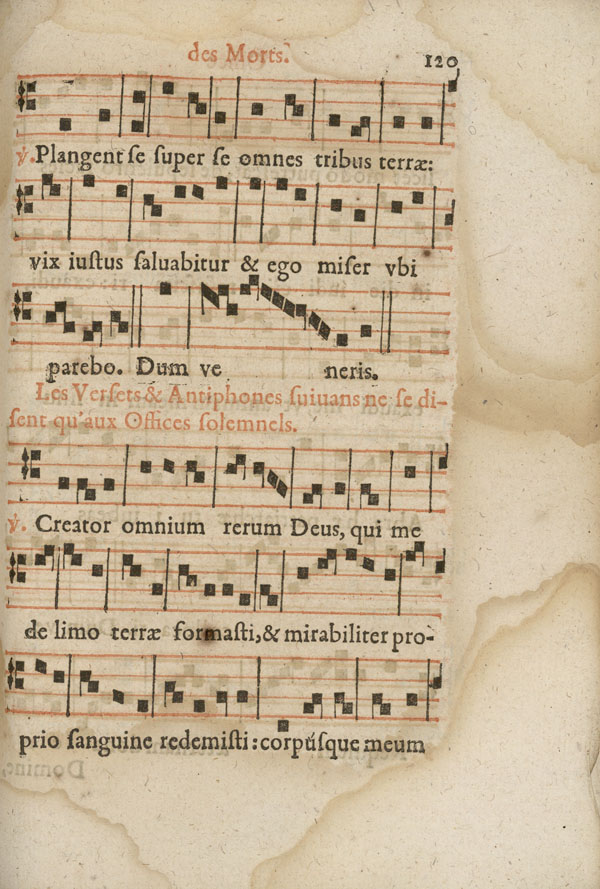 des Morts. 120
℣. Plangent ſe ſuper ſe omnes tribus terræ:
vix iuſtus ſaluabitur & ego miſer vbi
parebo. Dum ve neris.
Les Verſets & Antiphones ſuiuans ne ſe di-
ſent qu'aux Offices ſolemnels.
℣. Creator omnium rerum Deus, qui me
de limo terræ formaſti, & mirabiliter pro-
prio ſanguine redemiſti: corpúſque meum